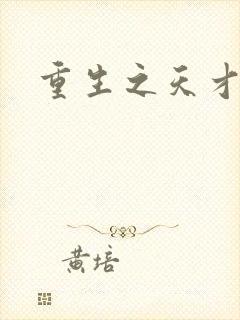 重生之天才
黄培